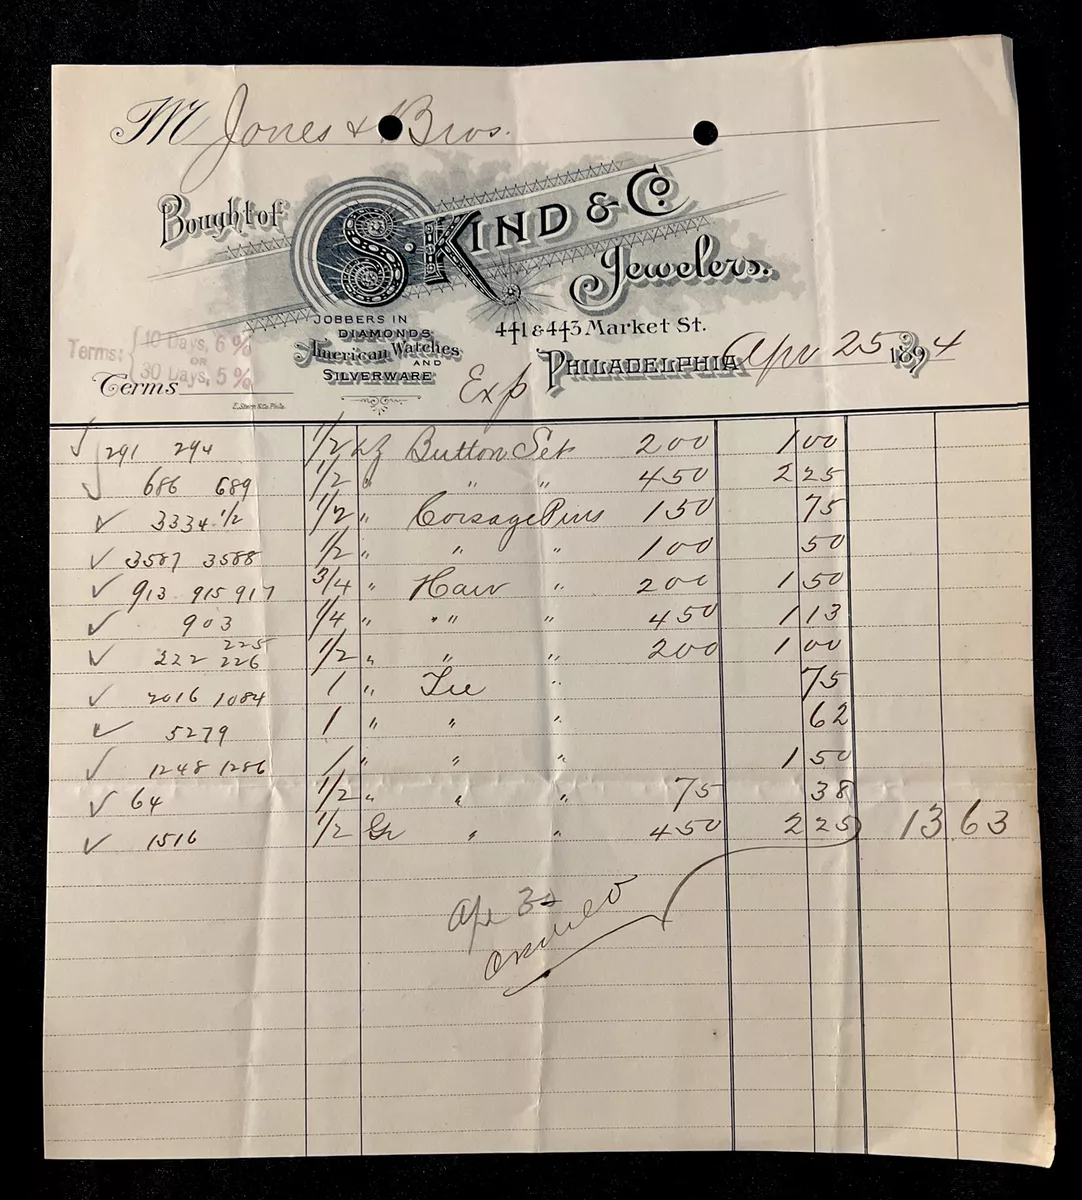 M Jones & Bros.
Bought of
S. Kind & Co.
Jewelers.
Jobbers in
Diamonds,
American Watches
and
Silverware
441 & 443 Market St.
Philadelphia Apr 25 1894
Terms: { 10 Days, 6 %
or
30 Days, 5 %
Terms
Exp
E. Stern & Co. Phila.
✓ 291 294 1/2 dz Button Set 2 00 1 00
✓ 686 689 1/2 " " " 4 50 2 25
✓ 3334 1/2 1/2 " Corsage Pins 1 50 75
✓ 3587 3588 1/2 " " " 1 00 50
✓ 913 915 917 3/4 " Hair " 2 00 1 50
✓ 903 1/4 " " " 4 50 1 13
225
✓ 222 226 1/2 " " " 2 00 1 00
✓ 2016 1084 1 " Tie " 75
✓ 5279 1 " " " 62
✓ 1248 1286 1 " " " 1 50
✓ 64 1/2 " " " 75 38
✓ 1516 1/2 Gr " " 4 50 2 25 13 63
Apr